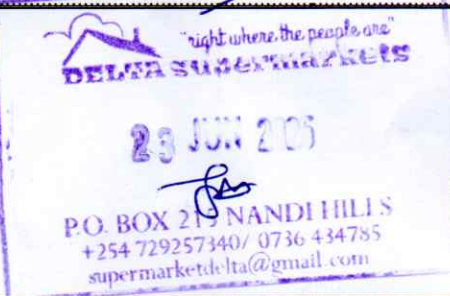 "right where the people are"
DELTA SUPERMARKETS
23 JUN
P.O. BOX NANDI HILLS
+254 729257340/ 0736 434785
supermarketdelta@gmail.com